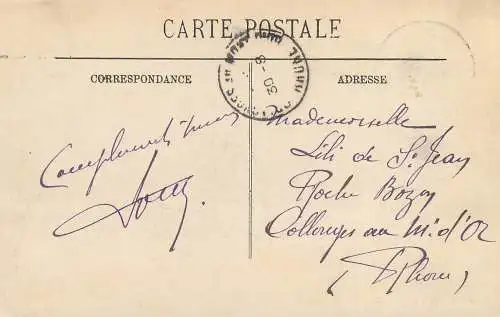 CARTE POSTALE
CORRESPONDANCE
ADRESSE
30 -8
Compliments
Mademoiselle
Lili de St Jean
Roche Bozon
Collonges au M. d'Or
(Rhône)